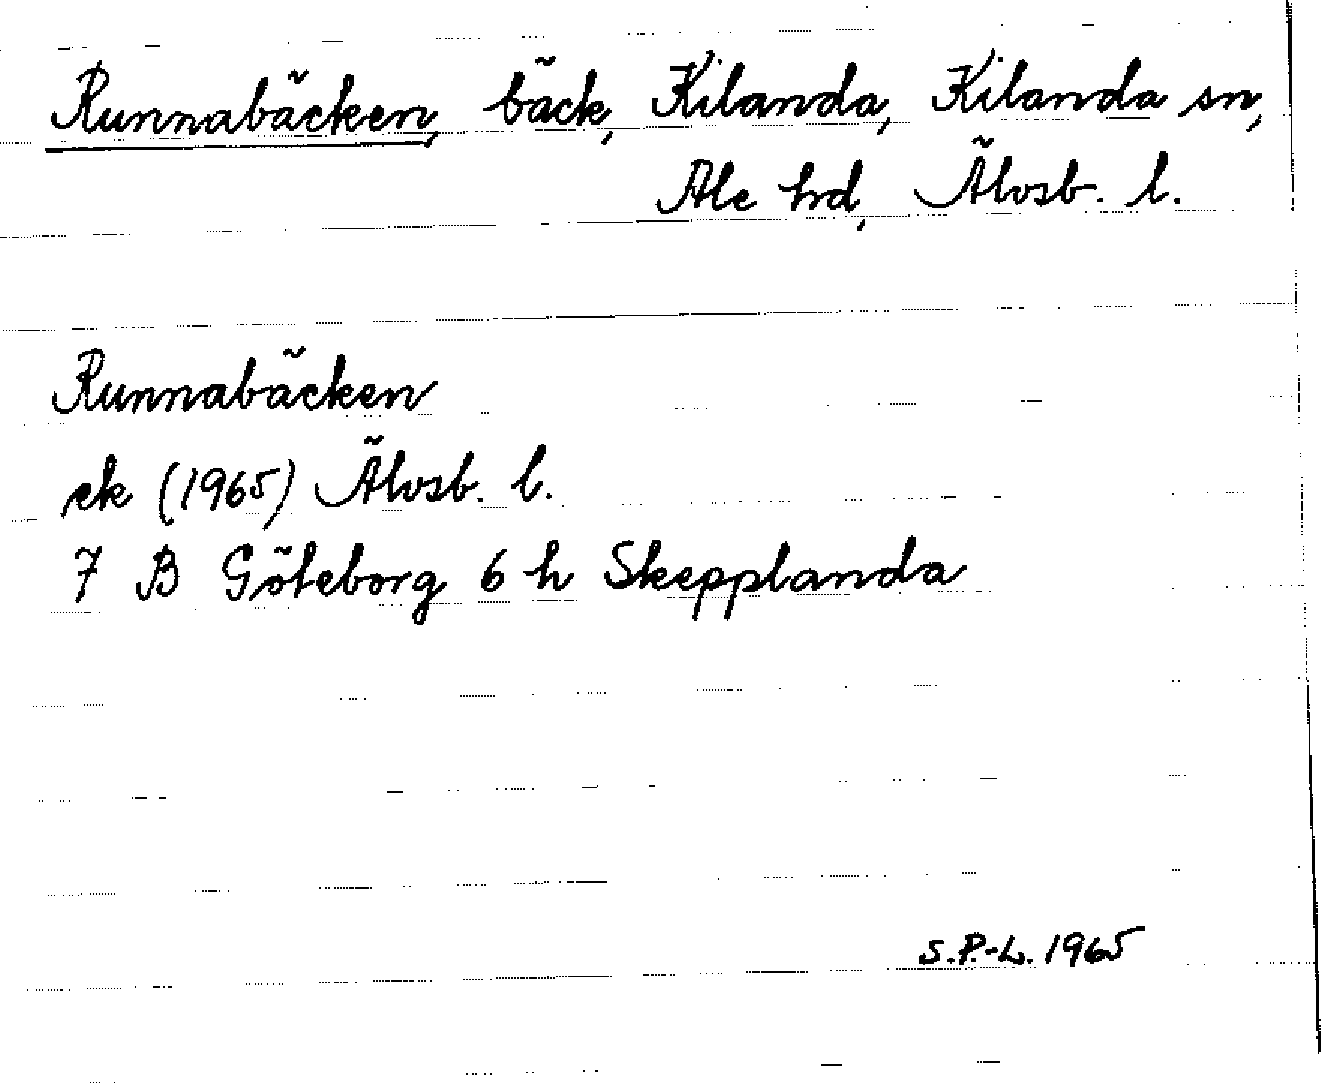 Runnabäcken, bäck, Kilanda, Kilanda sn,
Ale hd, Älvsb. l.
Runnabäcken
ek (1965) Älvsb. l.
7 B Göteborg 6 h Skepplanda
S.P.-L. 1965